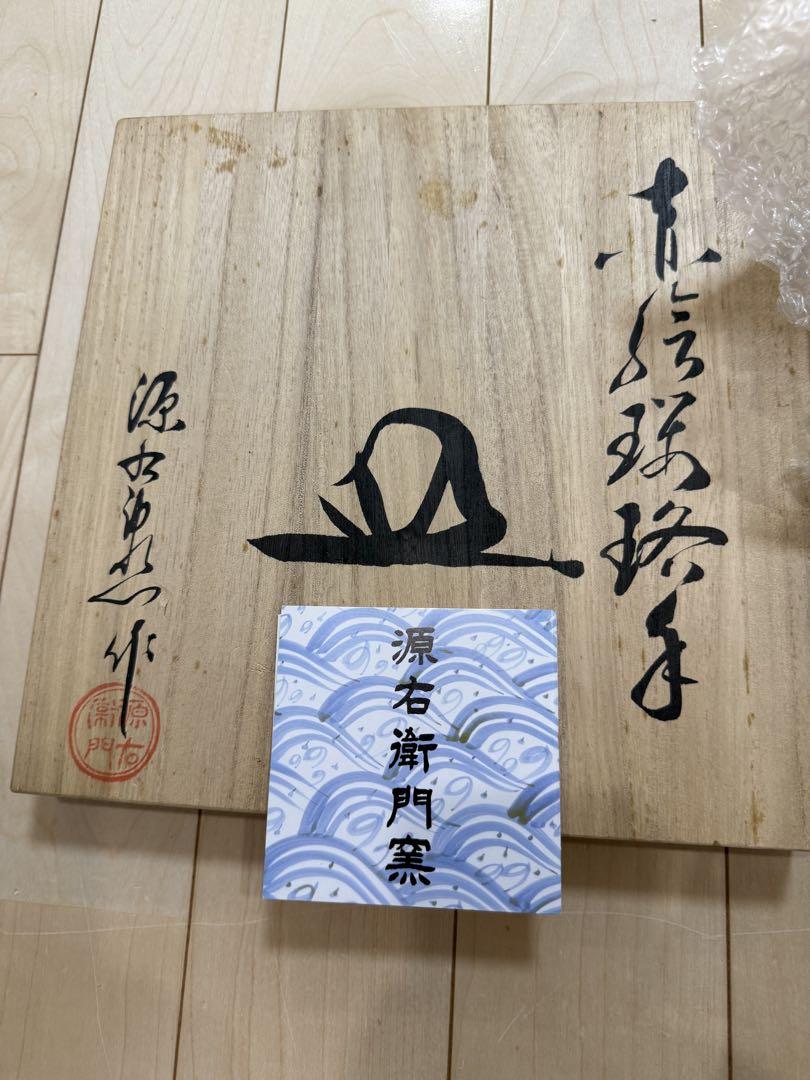 赤絵瓔珞手
皿
源右衛門窯作
源右
衛門
源右衛門窯